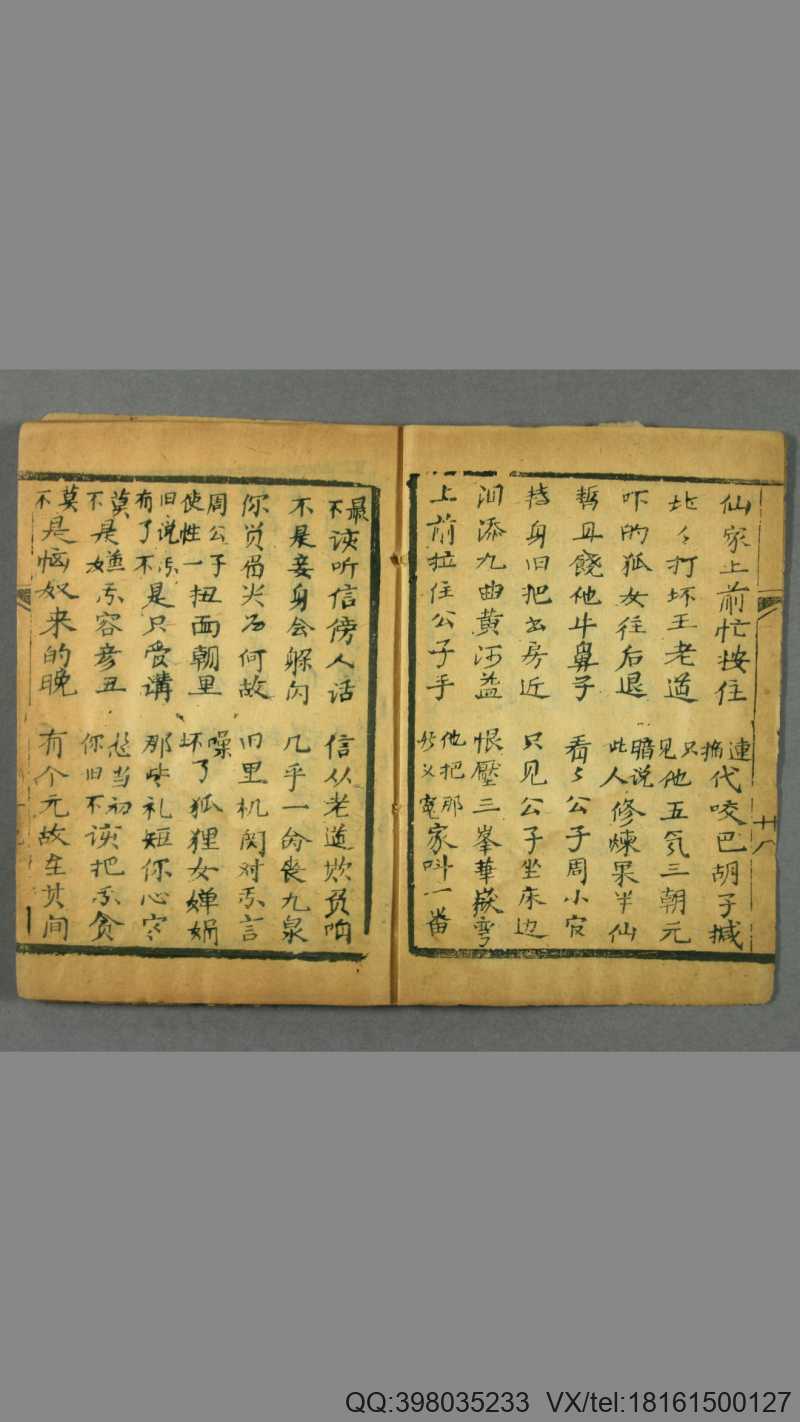 仙家上前忙按住 連代咬巴胡子搣
比々打坏王老道 只见他五气三朝元
吓的狐女往后退 暗说此人修煉果半仙
暂且饶他牛鼻子 看々公子周小官
转身旧把书房近 只见公子坐床边
泪添九曲黄河益 恨壓三峯華嶽弯
上前拉住公子手 他把那 家叫一番
廿八
最不该听信傍人话 信从老道欺负咱
不是妾身会躲闪 几乎一命丧九泉
你货 何故 旧里机関对 言
周公子使性一扭面朝里 噪坏了狐狸女婵娟
旧说 有了不是只受讲 那些礼短你心
莫不是嫌 容彦丑 想当初你旧不该把 贪
莫不是恼奴来的晚 有个元故在其间
QQ:398035233 VX/tel:18161500127